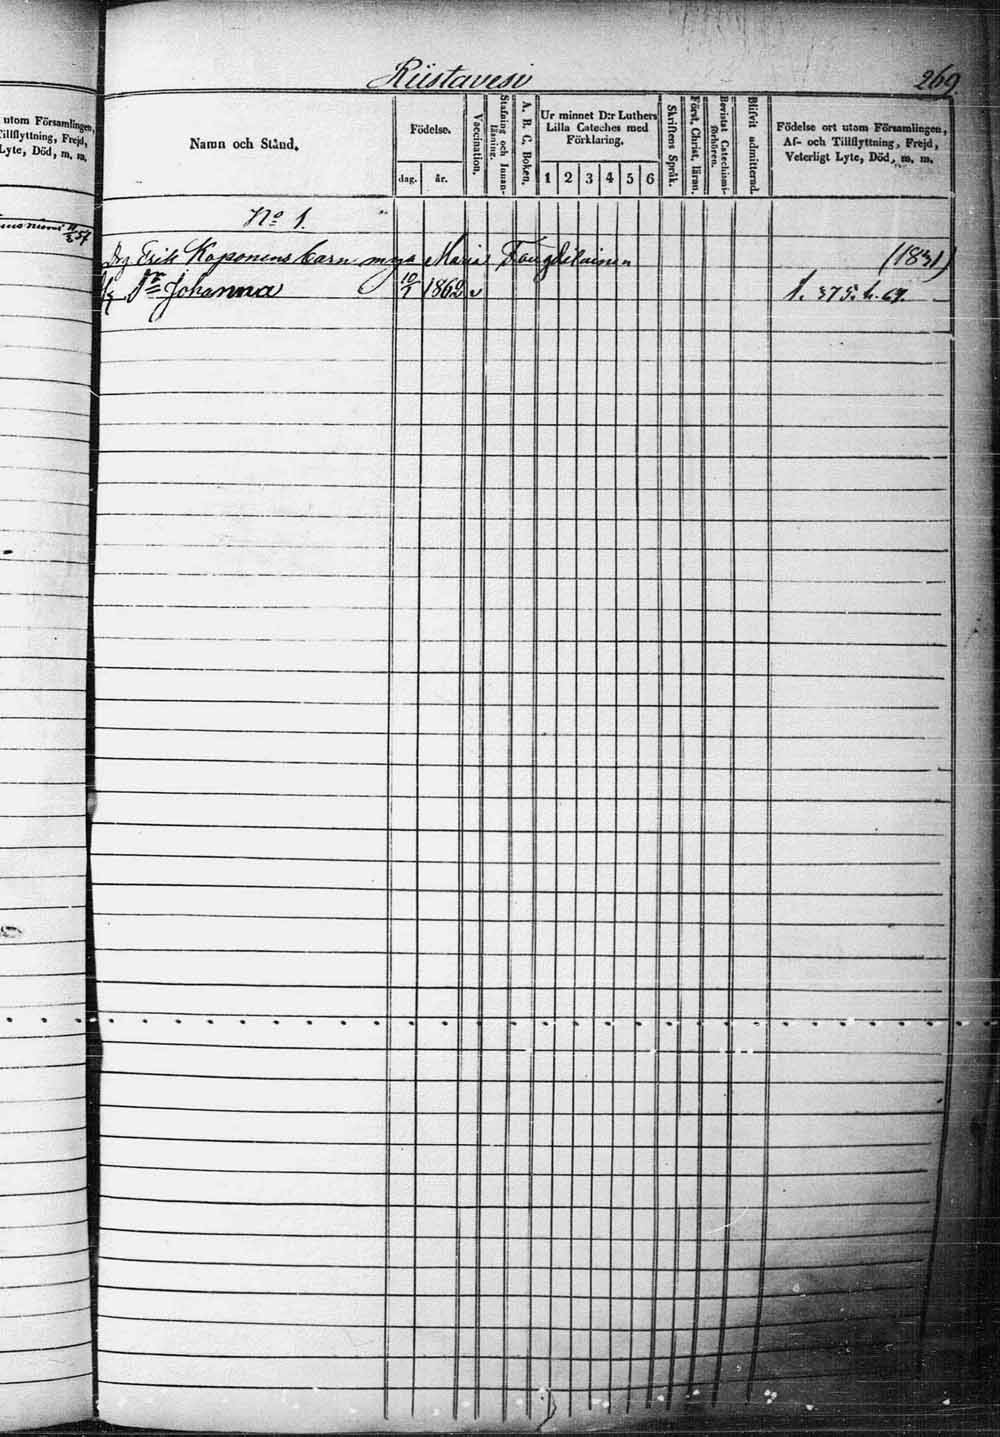 Riistavesi
269
utom Församlingen,
Tillflyttning, Frejd,
Lyte, Död, m. m.
Namn och Stånd.
Födelse.
dag.
år.
Vaccination.
Stafning och Innan-
läsning.
A. B. C. Boken.
Ur minnet D:r Luthers
Lilla Cateches med
Förklaring.
1 2 3 4 5 6
Skriftens Språk.
Först. Christ. läran.
Bevistat Catechismi-
förhören.
Blifvit admitterad.
Födelse ort utom Församlingen,
Af- och Tillflyttning, Frejd,
Veterligt Lyte, Död, m. m.
No 1.
Erik Koponens barn Maria (1831)
Johanna 10/1 1862 v 1. 375. 69.